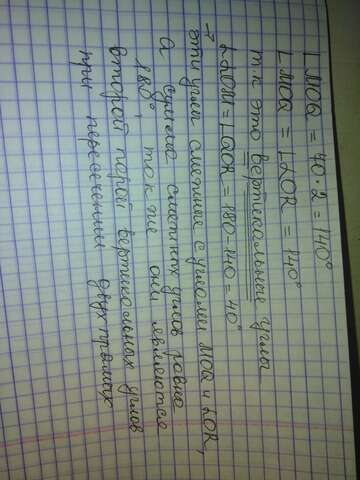 ∠MOQ = 70·2 = 140°
∠MOQ = ∠LOR = 140°
т к это вертикальные углы
→ ∠LOM = ∠QOR = 180-140 = 40°
эти углы смежные с углами MOQ и LOR,
а сумма смежных углов равна
180°, также они являются
второй парой вертикальных углов
при пересечении двух прямых